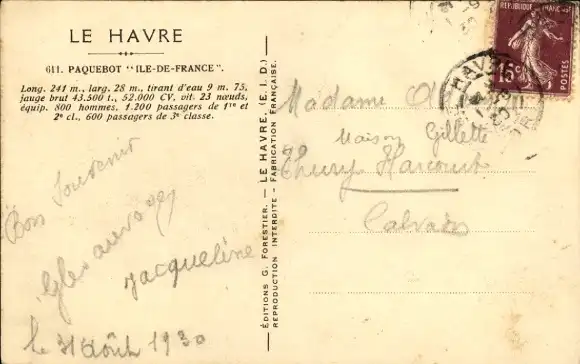 LE HAVRE
611. PAQUEBOT "ILE-DE-FRANCE".
Long. 241 m., larg. 28 m., tirant d'eau 9 m. 75,
jauge brut 43.500 t., 52.000 CV, vit. 23 nœuds,
équip. 800 hommes. 1.200 passagers de 1re et
2e cl., 600 passagers de 3e classe.
Bons Souvenir
Jacqueline
le 31 Août 1930
EDITIONS G. FORESTIER. — LE HAVRE. (E. I. D.)
REPRODUCTION INTERDITE - FABRICATION FRANÇAISE.
REPUBLIQUE FRANÇAISE
15c
POSTES
HAVRE
Madame
Maison Gillette
Thury Harcourt
Calvados